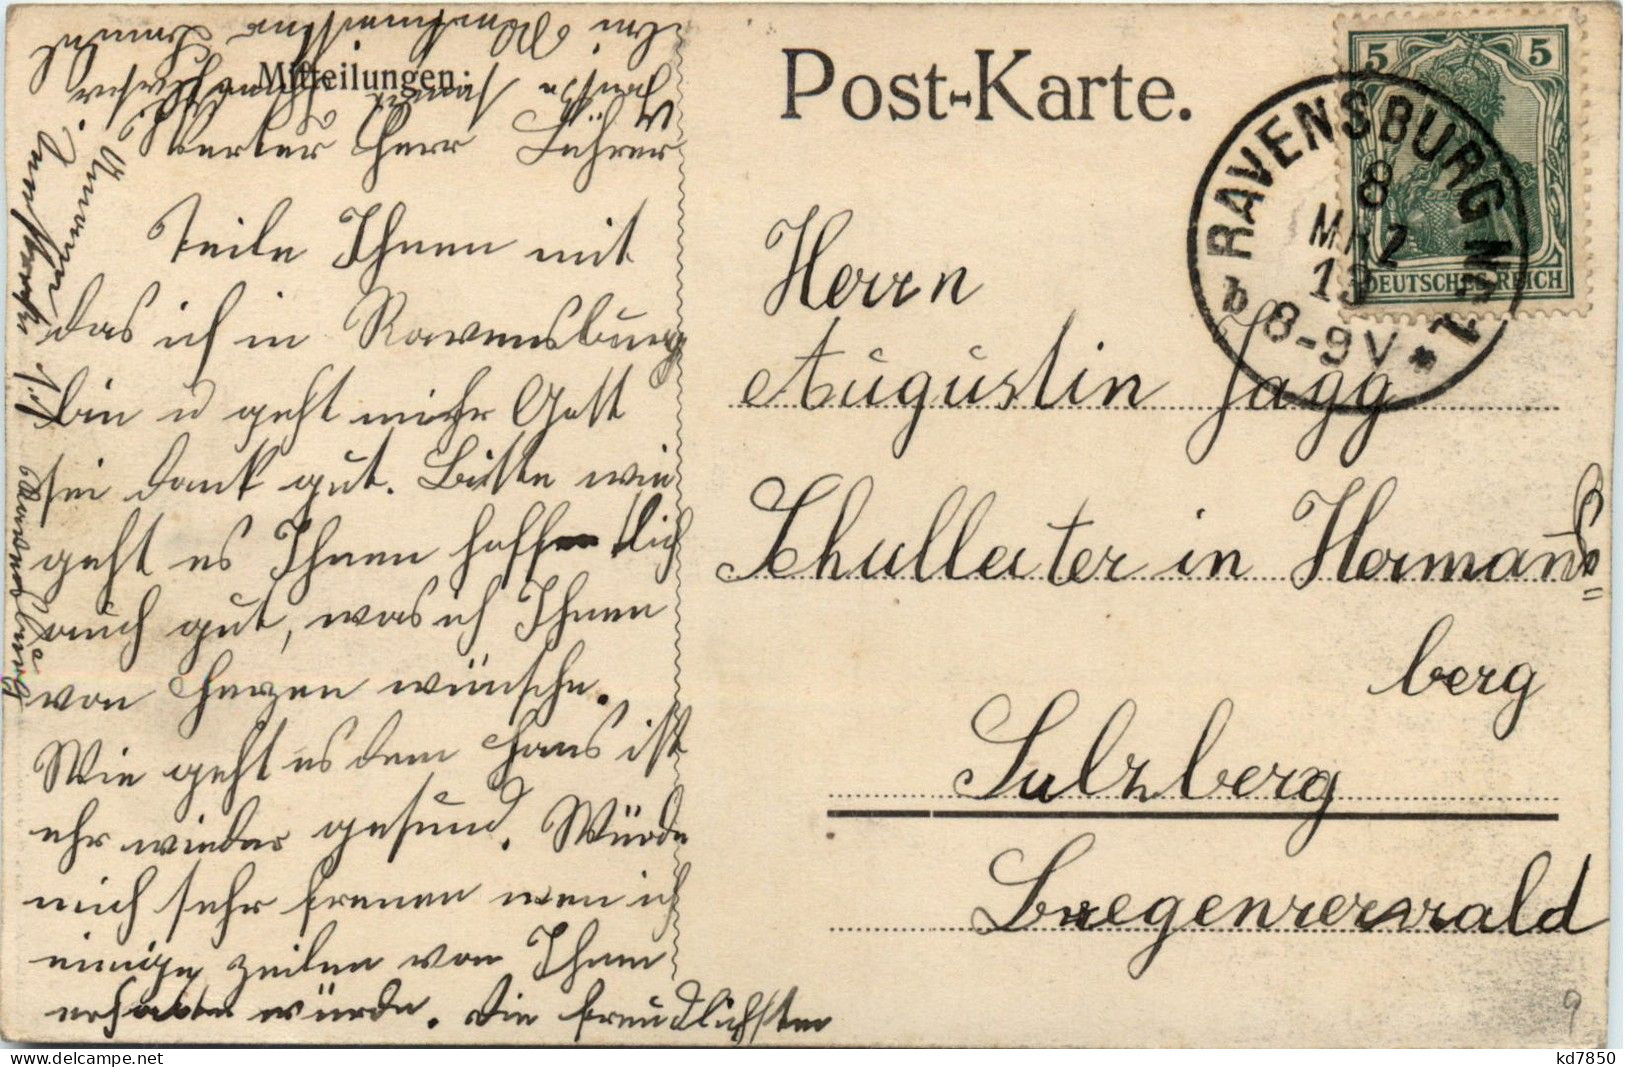 Mitteilungen:
Werter Herr Lehrer
Teile Ihnen mit
das ich in Ravensburg
bin u geht mihr Gott
sei dank gut. Bitte wie
geht es Ihnen hoffentlich
auch gut, was ich Ihnen
von Herzen wünsche.
Wie geht es dem Hans ist
ehr wieder gesund. Würde
mich sehr freuen wen ich
einige zeilen von Ihnen
erhalten würde. Die freundlichsten
Ravensburg
Post-Karte.
5 5
DEUTSCHES REICH
RAVENSBURG Nº 1
8
MRZ
13
b 8-9V *
Herrn
Augustin Jagg
Schulleiter in Hormanns=
berg
Sulzberg
Bregenzerwald
9
kd7850